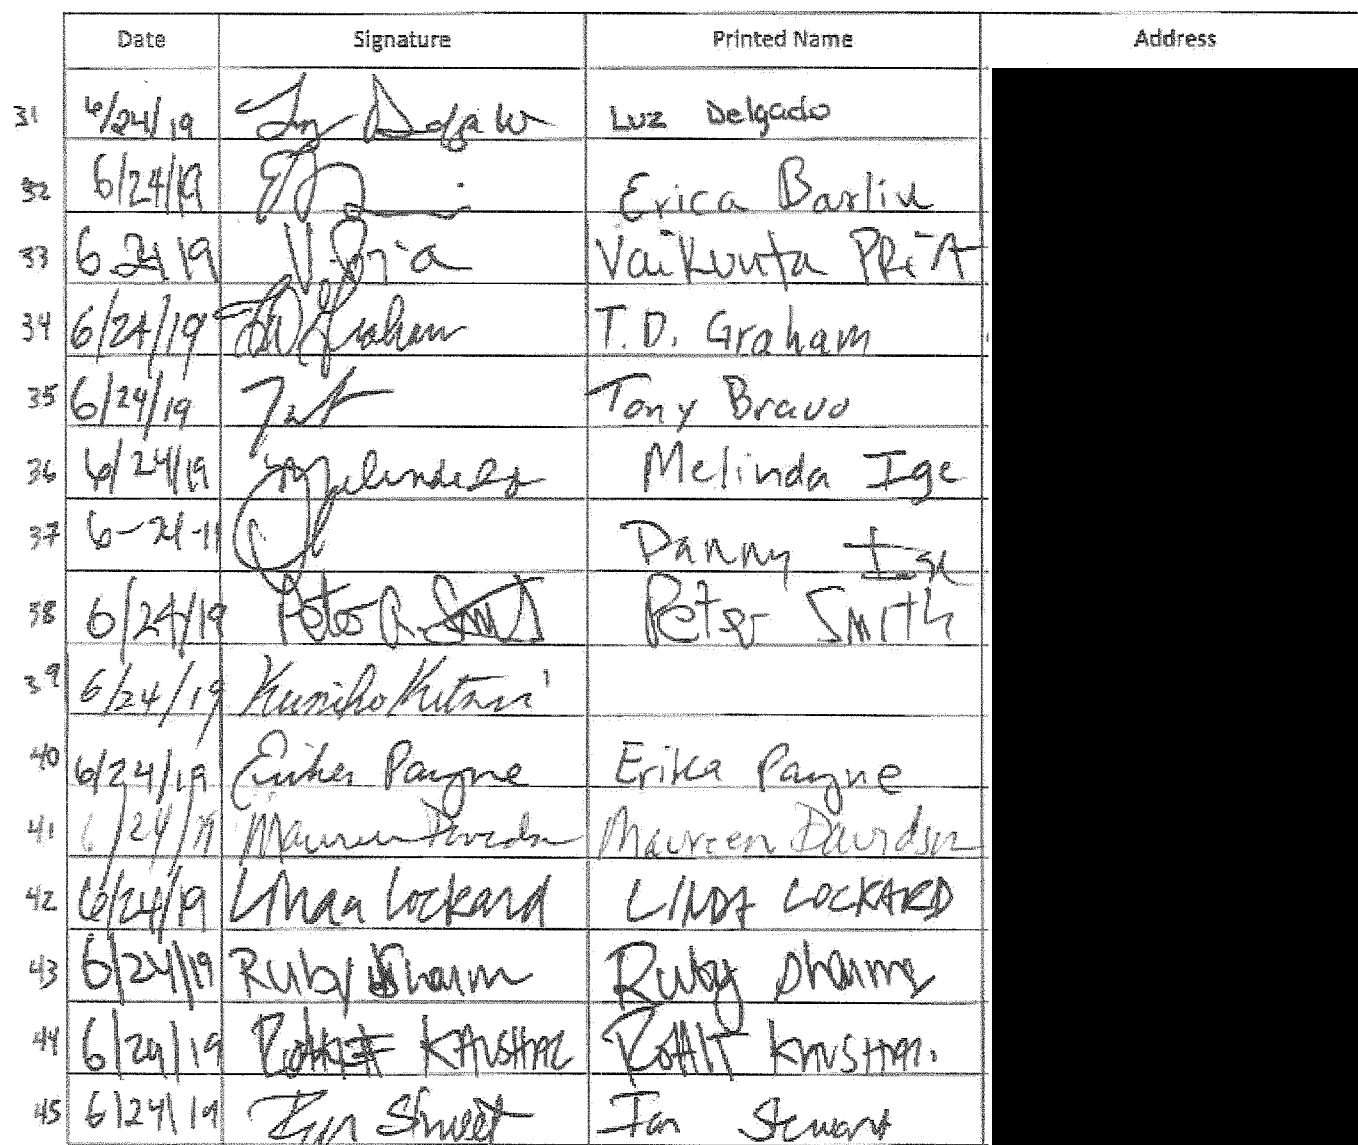 Date Signature Printed Name Address
31 6/24/19 Luz Delgado Luz Delgado
32 6/24/19 Erica Barlin
33 6 24 19 V. Pria Vaikunta PRiA
34 6/24/19 T.D. Graham T.D. Graham
35 6/24/19 Tony Bravo
36 6/24/19 Melinda Ige Melinda Ige
37 6-24-19 Danny Ige
38 6/24/19 Peter R. Smith Peter Smith
39 6/24/19 Kuniko
40 6/24/19 Erika Payne Erika Payne
41 6/24/19 Maureen Davidson Maureen Davidson
42 6/24/19 Linda Lockard LINDA LOCKARD
43 6/24/19 Ruby Sharma Ruby Sharma
44 6/24/19 ROHIT KAUSHAL ROHIT KAUSHAL
45 6/24/19 Ian Stewart